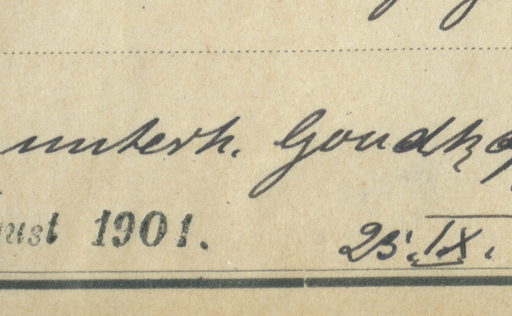 unterh. Goudkop
ust 1901. 25. IX.